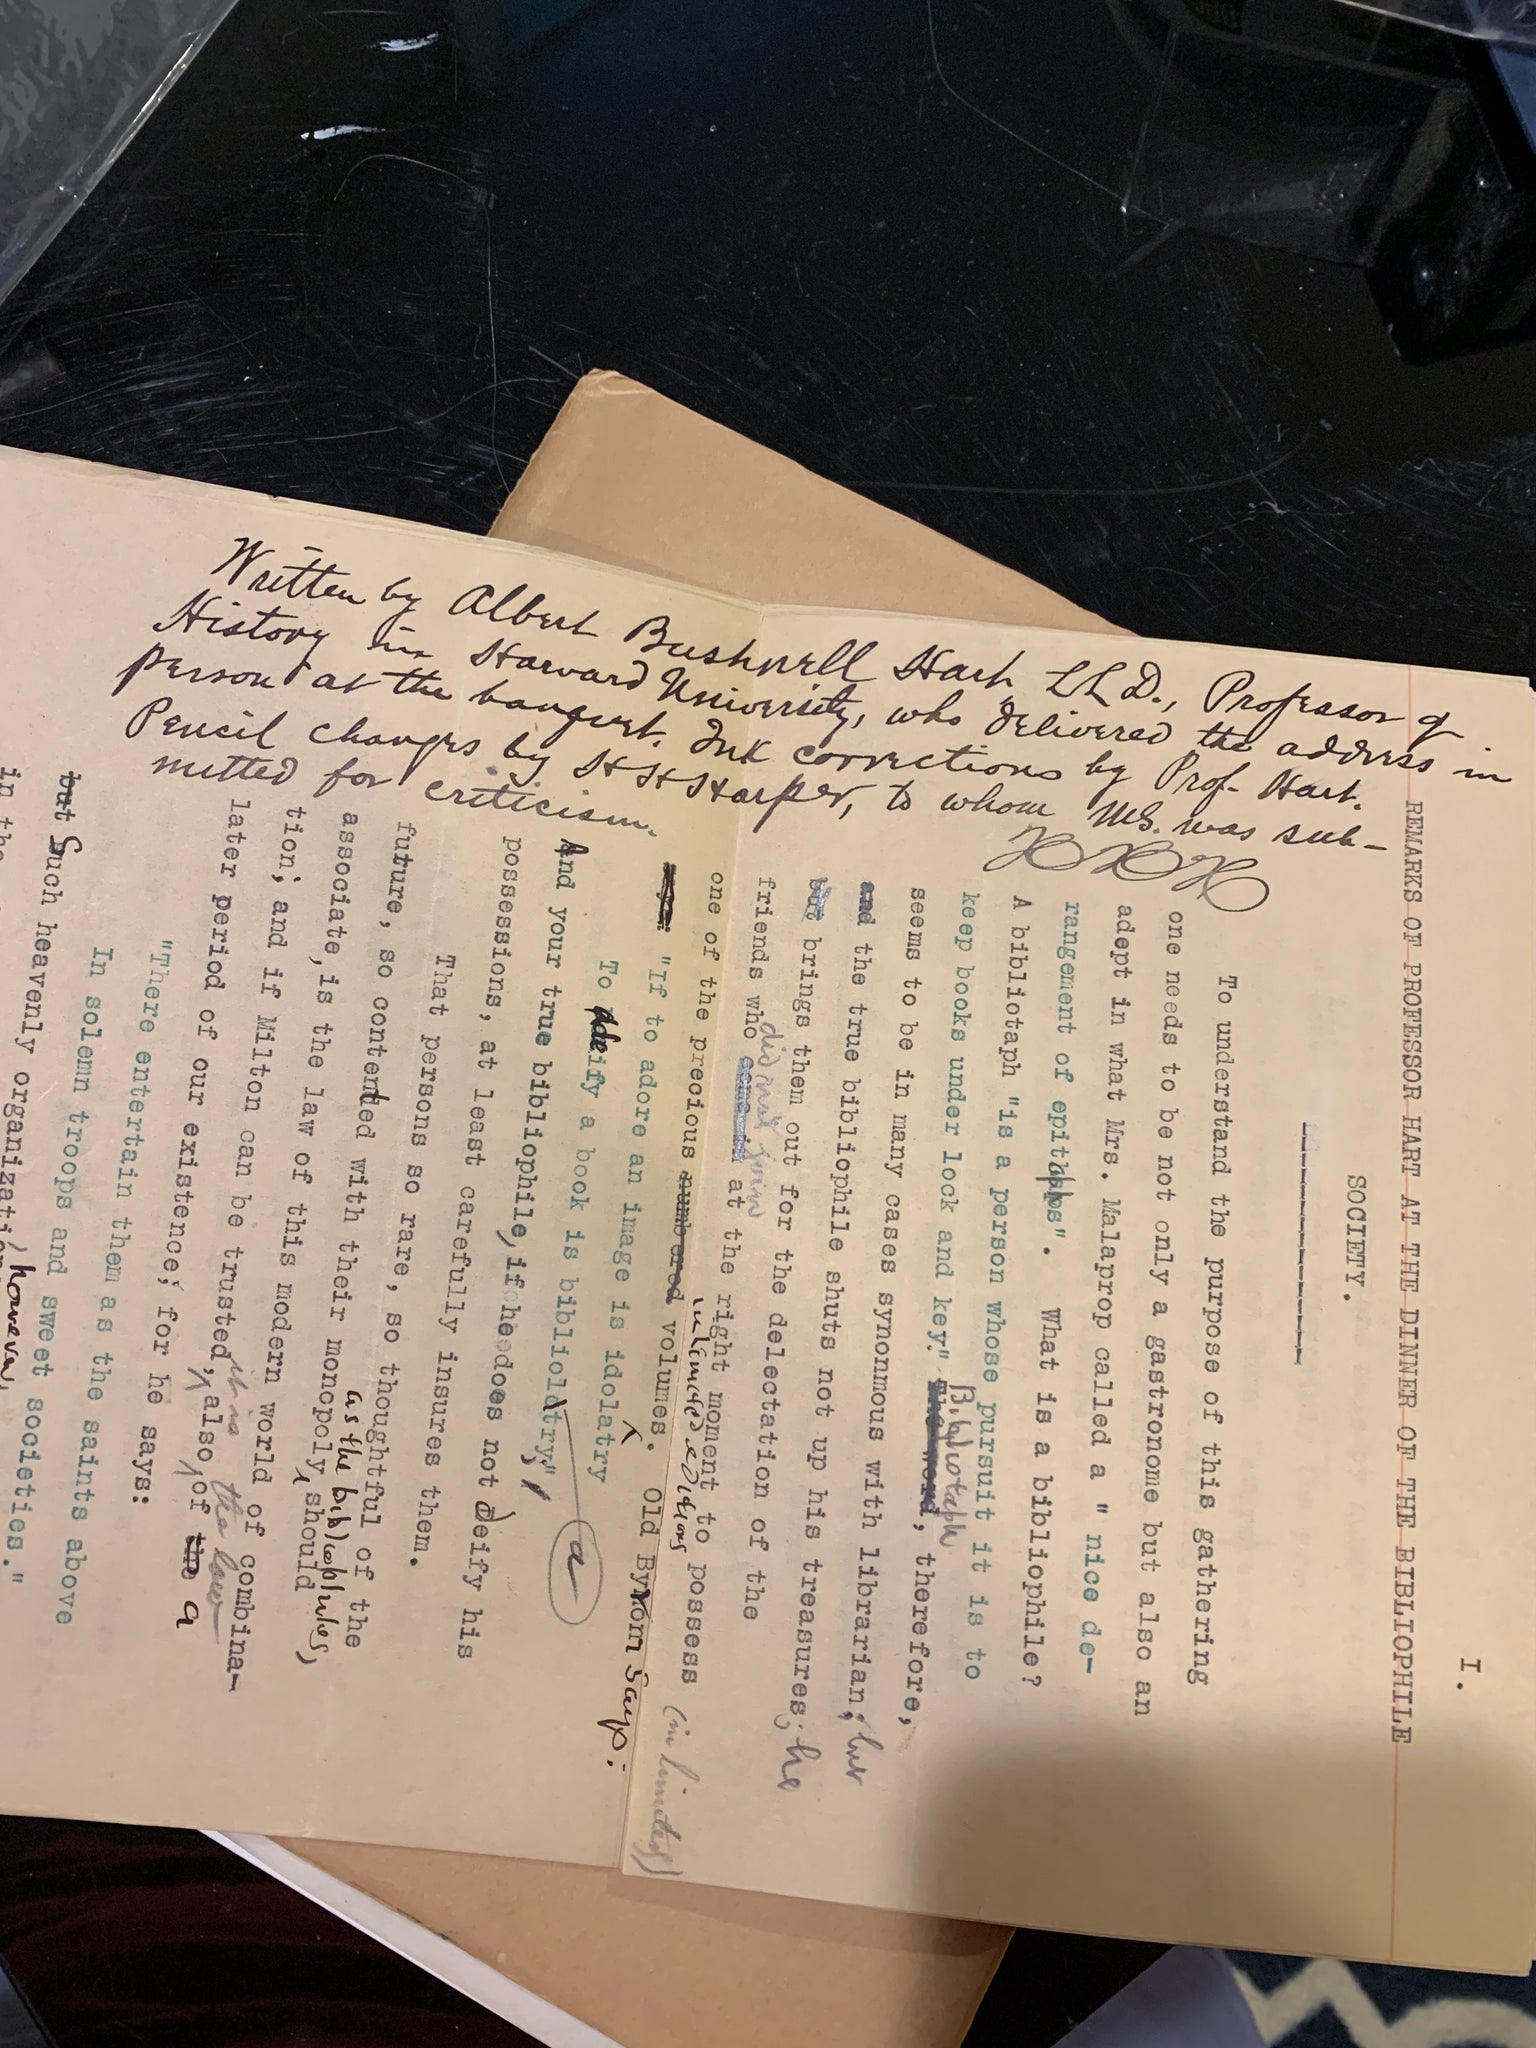 I.
REMARKS OF PROFESSOR HART AT THE DINNER OF THE BIBLIOPHILE
SOCIETY.
Written by Albert Bushnell Hart LLD., Professor of
History in Harvard University, who delivered the address in
person at the banquet. Ink corrections by Prof. Hart.
Pencil changes by HHHarper, to whom MS. was sub-
mitted for criticism.
HHH
To understand the purpose of this gathering
one needs to be not only a gastronome but also an
adept in what Mrs. Malaprop called a " nice de-
rangement of epitaphs". What is a bibliophile?
A bibliotaph "is a person whose pursuit it is to
keep books under lock and key." The word, therefore,
Bibliotaph
seems to be in many cases synonmous with librarian; but
and the true bibliophile shuts not up his treasures; he
but brings them out for the delectation of the
friends who at the right moment to possess
did not join
one of the precious numbered volumes. Old Byrom says:
in limited editions
(in limited)
"If to adore an image is idolatry
To deify a book is biblioltry,"
a
And your true bibliophile, if he does not deify his
possessions, at least carefully insures them.
That persons so rare, so thoughtful of the
future, so contented with their monopoly, should
as the bibliophiles,
associate, is the law of this modern world of combina-
tion; and if Milton can be trusted, also of the a
later period of our existence; for he says:
"There entertain them as the saints above
In solemn troops and sweet societies."
but Such heavenly organizations
however,
in the